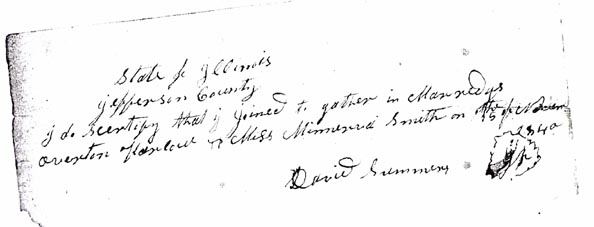 State of Illinois
Jefferson County
I do Scertify that I Joined to gather in Marredgs
Overton Harlow & Miss Minnerva Smith on the 15 of
1840
David Summers